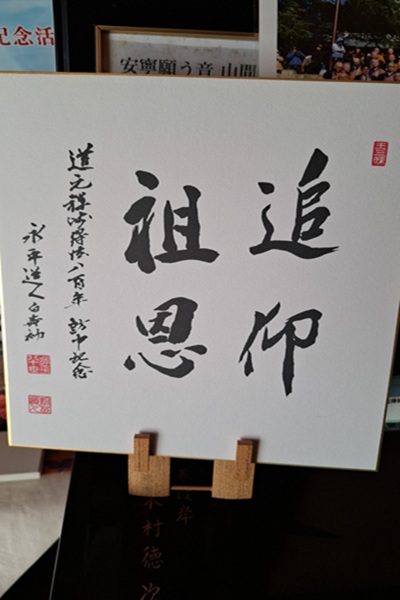 追仰
祖恩
道元禅師降誕八百年 訪中記念
永平道人白寿衲
記念活
安寧願う音 山間
岸
木村徳